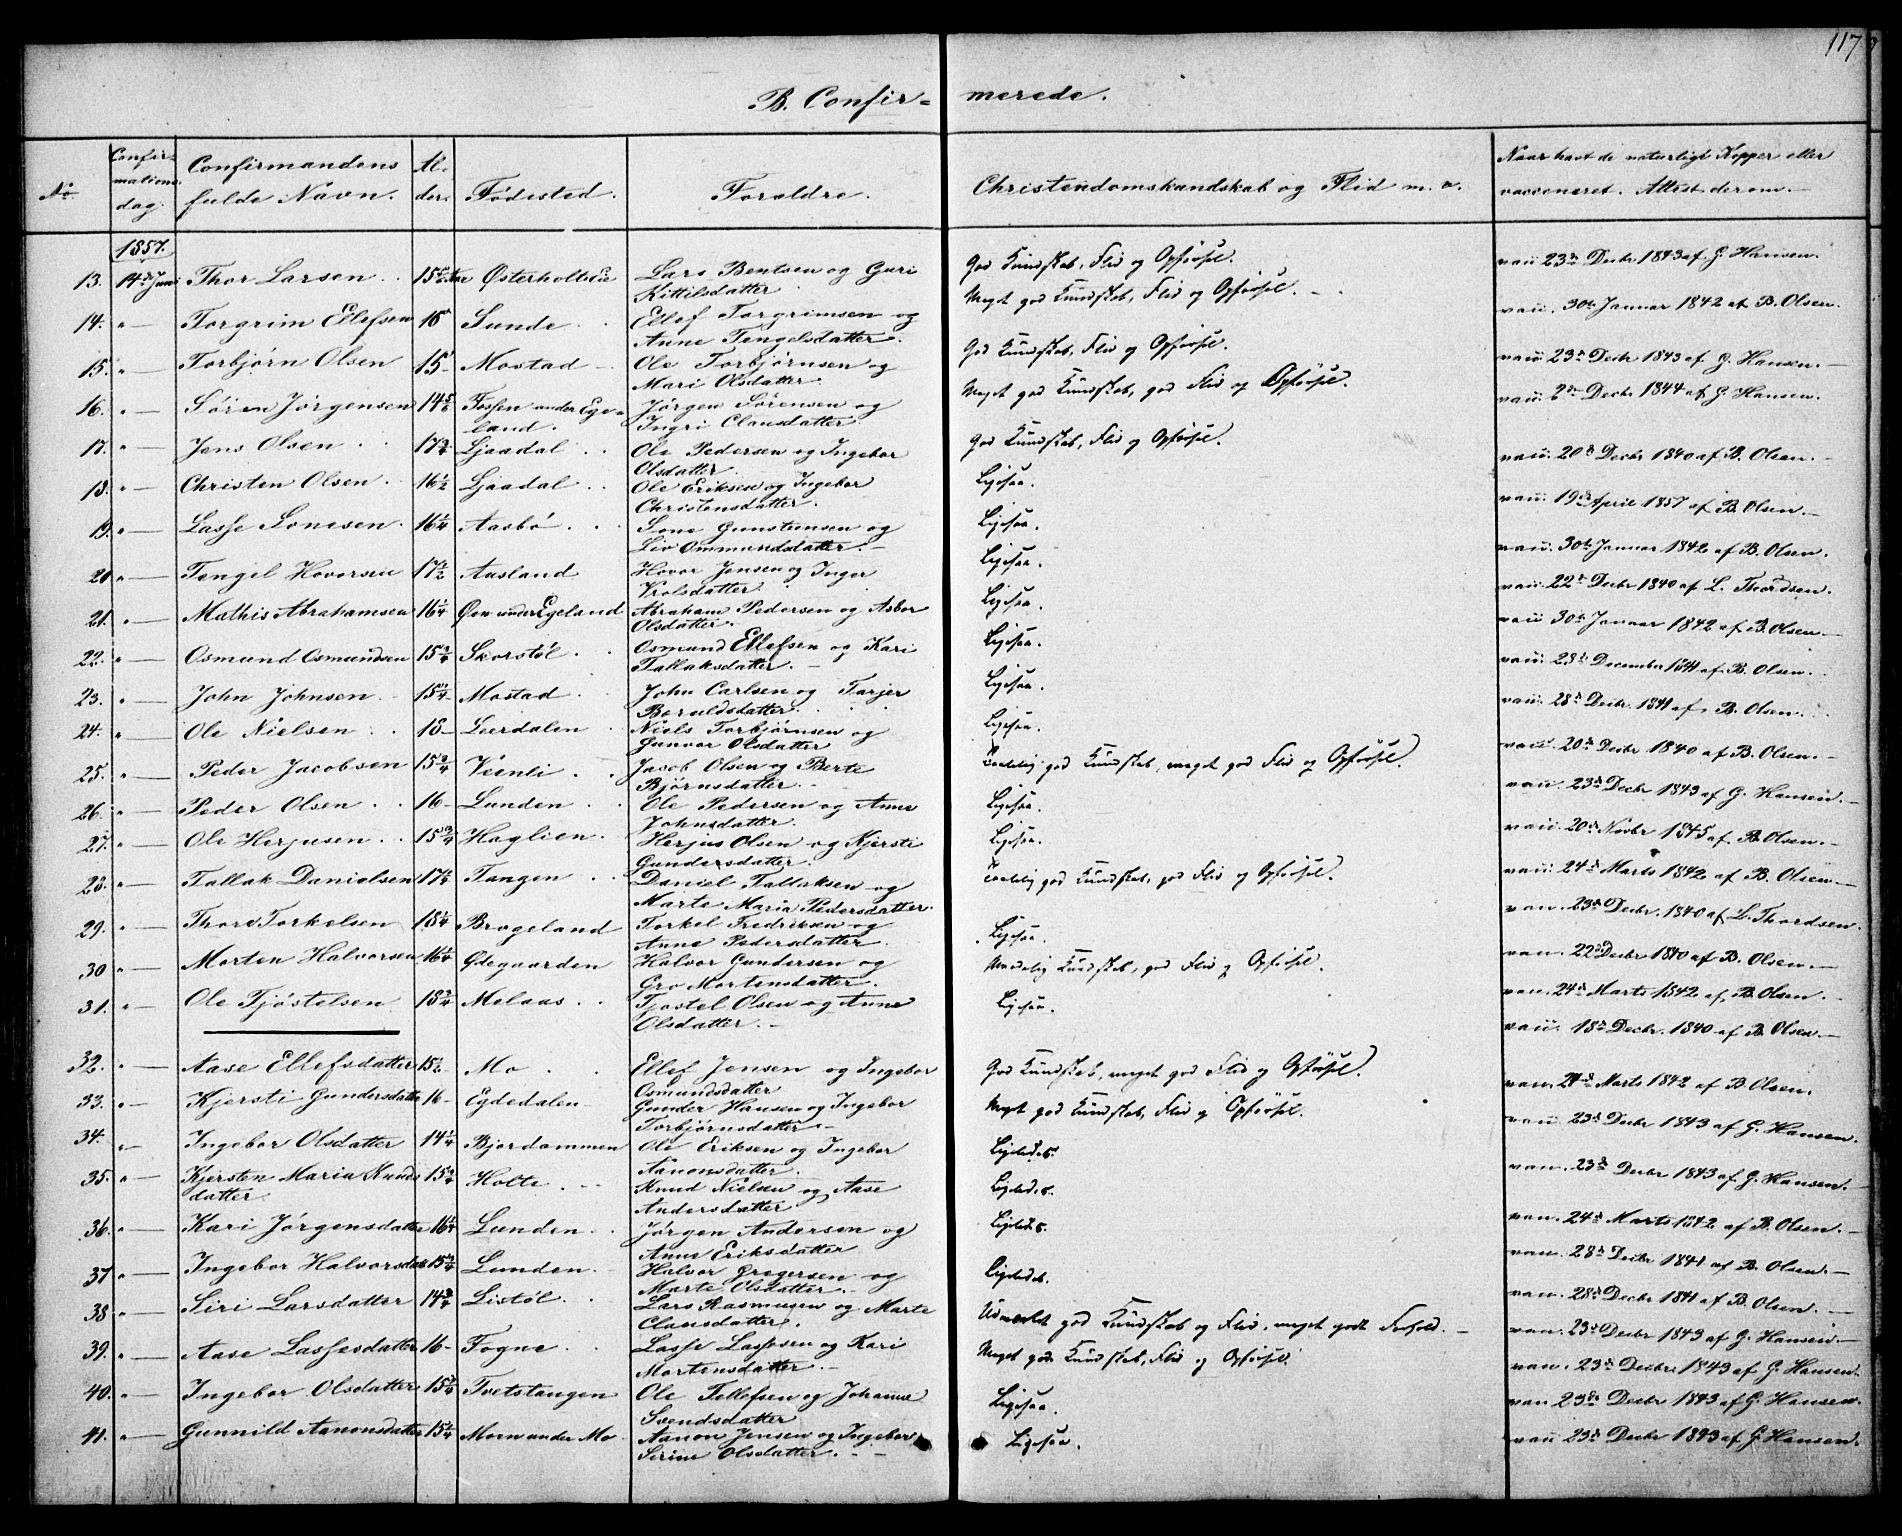 117
B. Confir= merede.
No
Confir-
mations-
dag.
Confirmandens
fulde Navn.
Al-
der.
Fødested.
Forældre.
Christendomskundskab og Flid m. v.
Naar havt de naturligt Kopper eller
vaccineret. Attest derom.
1857.
13. 14de Juni Thor Larsen Østerholt Lars Bentsen og Guri
Kittilsdatter
God Kundskab, Flid og Opførsel.
vacc 23de Decbr 1843 af G. Hansen.
14. " Torgrim Ellefsen 15 Sunde Ellef Torgrimsen og
Anne Tengelsdatter.
Meget god Kundskab, Flid og Opførsel.
vacc. 30te Januar 1842 af B. Olsen.
15. " Torbjørn Olsen 15 Mostad Ole Torbjørnsen og
Mari Olsdatter
God Kundskab, Flid og Opførsel.
vacc. 23de Decbr 1843 af G. Hansen.
16. " Søren Jørgensen Fossen under Ege-
land. Jørgen Sørensen og
Ingri Clausdatter
Meget god Kundskab, god Flid og Opførsel.
vacc. 2den Decbr 1844 af G. Hansen.
17. " Jens Olsen Ljaadal Ole Pedersen og Ingebor
Olsdatter.
God Kundskab, Flid og Opførsel.
vacc. 20de Decbr 1840 af B. Olsen.
18. " Christen Olsen 16 1/2 Ljaadal Ole Eriksen og Ingebor
Christensdatter.
Ligesaa.
vacc. 19de April 1857 af B. Olsen.
19. " Lasse Sonesen 16 1/4 Aasbø Sone Gunstensen og
Liv Ommundsdatter.
Ligesaa.
vacc. 30te Januar 1842 af B. Olsen.
20. " Tengel Hovorsen 17 1/2 Aasland Hovor Jensen og Inger
Vrolsdatter
Ligesaa.
vacc. 22de Decbr 1840 af L. Thordsen.
21. " Mathis Abrahamsen 16 1/4 Øen under Egeland Abraham Pedersen og Asbor
Olsdatter.
Ligesaa.
vacc. 30te Januar 1842 af B. Olsen.
22. " Osmund Osmundsen 15 3/4 Skorstøl Osmund Ellefsen og Kari
Tallaksdatter.
Ligesaa.
vacc. 28de December 1841 af B. Olsen.
23. " John Johnsen 15 Mostad John Carlsen og Tarjer
Boruldsdatter.
Ligesaa.
vacc. 28de Decbr. 1841 af B. Olsen.
24. " Ole Nielsen 18 Leerdalen Niels Torbjørnsen og
Gunvor Olsdatter
Ligesaa.
vacc. 20de Decbr 1840 af B. Olsen.
25. " Peder Jacobsen 15 3/4 Veenli Jacob Olsen og Berte
Bjørnsdatter.
Taalelig god Kundskab, meget god Flid og Opførsel.
vacc. 23de Decbr 1843 af G. Hansen.
26. " Peder Olsen 16 Lunden Ole Pedersen og Anne
Johnsdatter.
Ligesaa.
vacc. 20de Novbr 1845 af B. Olsen.
27. " Ole Herjusen 15 3/4 Haglien Herjus Olsen og Kjersti
Gundersdatter
Ligesaa.
vacc. 24de Marts 1842 af B. Olsen.
28. " Tallak Danielsen 17 1/4 Tangen Daniel Tallaksen og
Marte Maria Pedersdatter.
Taalelig god Kundskab, god Flid og Opførsel.
vacc. 23de Decbr. 1840 af L. Thordsen.
29. " Thore Torkelsen 18 1/4 Brogeland Torkel Fredriksen og
Anne Pedersdatter.
Ligesaa.
vacc. 22de Decbr 1840 af B. Olsen.
30. " Morten Halvorsen 16 1/4 Ødegaarden Halvor Gundersen og
Gro Mortensdatter.
Maadelig Kundskab, god Flid og Opførsel.
vacc. 24de Marts 1842 af B. Olsen.
31. " Ole Tjøstelsen 18 3/4 Melaas Tjøstel Olsen og Anne
Olsdatter.
Ligesaa.
vacc. 18de Decbr. 1840 af B. Olsen.
32. " Aase Ellefsdatter Mo Ellef Jensen og Ingebor
Osmundsdatter
God Kundskab, meget god Flid og Opførsel.
vacc. 24de Marts 1842 af B. Olsen.
33. " Kjersti Gundersdatter 16 Egdedalen Gunder Hansen og Ingebor
Torbjørnsdatter
Meget god Kundskab, Flid og Opførsel.
vacc. 23de Decbr 1843 af G. Hansen.
34. " Ingebor Olsdatter 14 1/4 Bjordammen Ole Eriksen og Ingebor
Aanonsdatter.
Ligeledes.
vacc. 23de Decbr 1843 af G. Hansen.
35. " Kjersten Maria Knuds
datter. 15 3/4 Holte Knud Nielsen og Aase
Andersdatter
Ligeledes.
vacc. 24de Marts 1842 af B. Olsen.
36. " Kari Jørgensdatter 16 1/4 Lunden Jørgen Andersen og
Anne Eriksdatter
Ligeledes.
vacc. 28de Decbr 1841 af B. Olsen.
37. " Ingebor Halvorsdatter 15 3/4 Lunden Halvor Gregersen og
Marte Olsdatter.
Ligeledes.
vacc. 28de Decbr 1841 af B. Olsen.
38. " Siri Larsdatter 14 3/4 Listøl Lars Rasmusen og Marte
Clausdatter.
Udmærket god Kundskab og Flid, meget godt Forhold.
vacc. 23de Decbr 1843 af G. Hansen.
39. " Aase Lassesdatter 16 Fogne Lasse Lassesen og Kari
Mortensdatter.
Meget god Kundskab, Flid og Opførsel.
vacc. 23de Decbr. 1843 af G. Hansen.
40. " Ingebor Olsdatter Tvetstangen Ole Tellefsen og Johanne
Svendsdatter
Ligesaa.
vacc 23de Decbr 1843 af G. Hansen.
41. " Gunnild Aanonsdatter 15 1/4 Moen under Mo Aanon Jensen og Ingebor
Serine Olsdatter.
Ligesaa.
vacc 23de Decbr 1843 af G. Hansen.